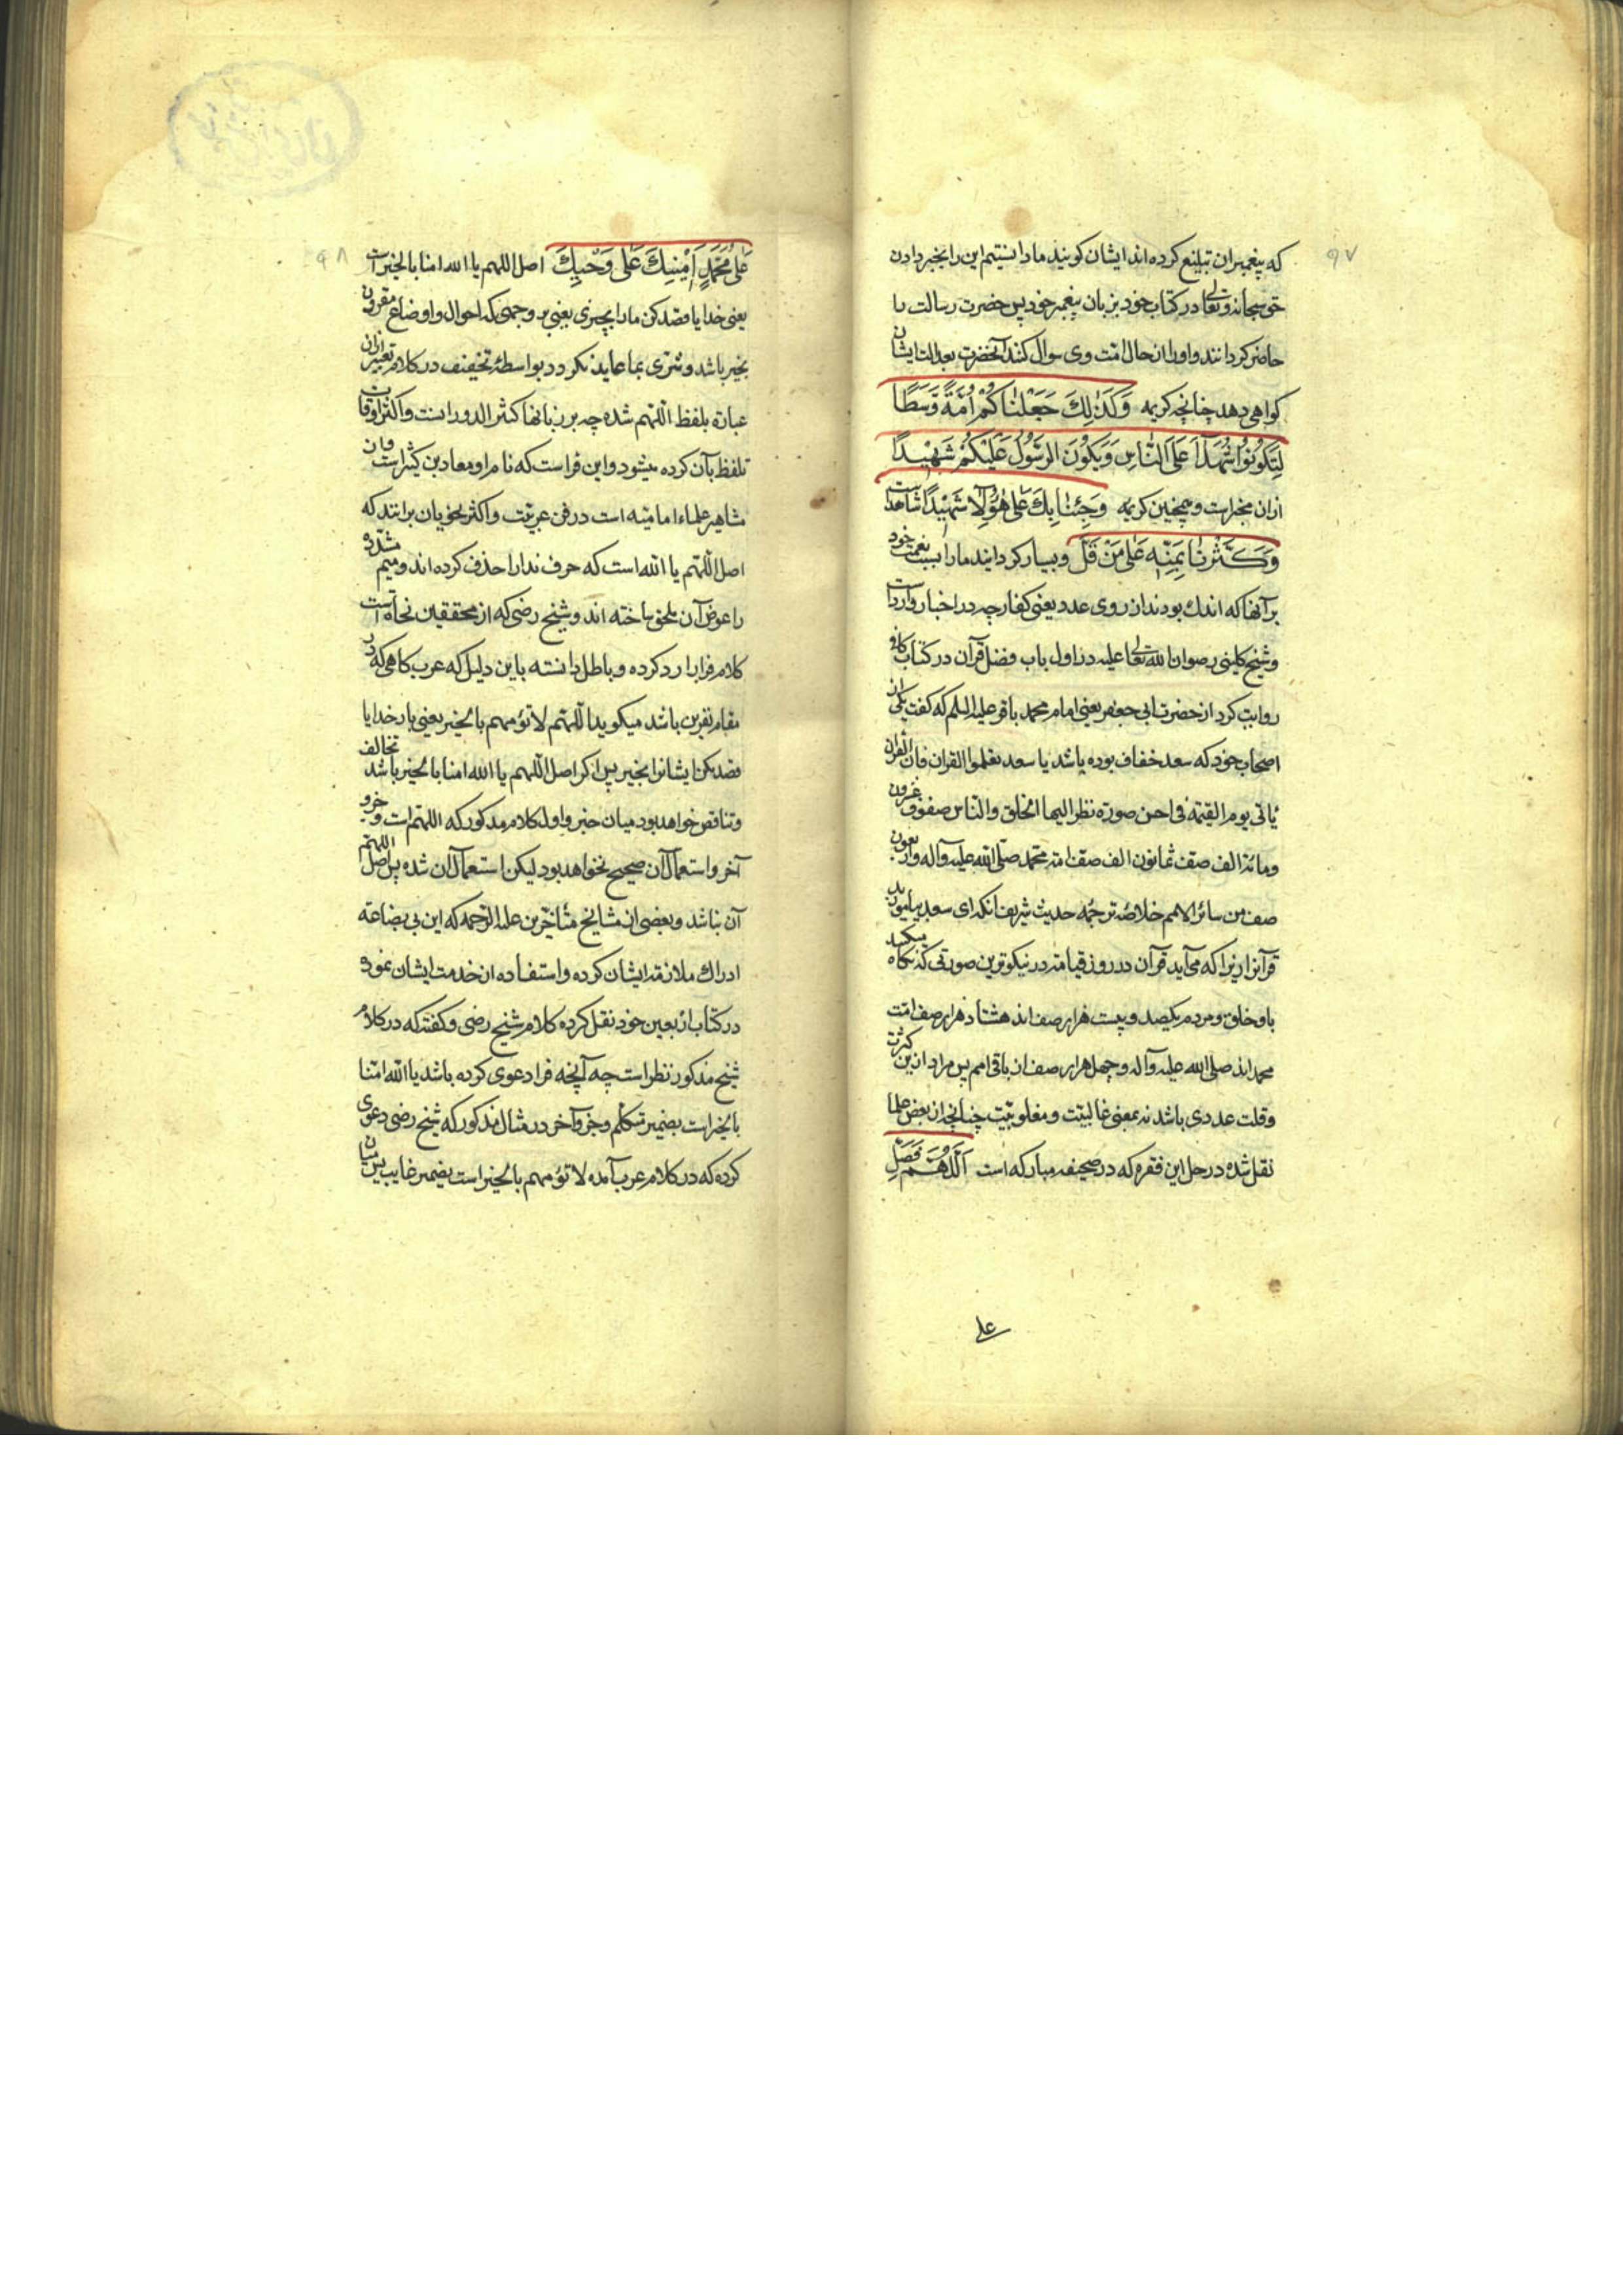 ۹۷
که پیغمبران تبلیغ کرده اند ایشان کویند ما دانستیم این را بخبر دادن
حق سبحانه وتعالی در کتاب خود بزبان پیغمبر خود پس حضرت رسالت را
حاضر کردانند واورا از حال امت وی سوال کنند آنحضرت بعدالت ایشان
کواهی دهد چنانچه کریمه وَكَذٰلِكَ جَعَلْنٰاكُمْ اُمَّةً وَسَطًا
لِتَكُونُوا شُهَدَآءَ عَلَى النّاسِ وَيَكُونَ الرَّسُولُ عَلَيْكُمْ شَهِيْدًا
ازان مخبراست وهمچنین کریمه وَجِئْنٰا بِكَ عَلٰى هٰؤُلآ شَهِيْدًا شاهداست
وَكَثَّرَنٰا بِمَنِّهِ عَلٰى مَنْ قَلَّ وبسیار کردانید مارا بسبب نعمت خود
بر آنها که اندك بودند از روی عدد یعنی کفار چه در اخبار وارداست
وشیخ کلینی رضوان الله تعالی علیه در اول باب فضل قرآن در کتاب کافی
روایت کرد از حضرت ابی جعفر یعنی امام محمد باقر علیه السلم که کفت یکی از
اصحاب خود که سعد خفاف بوده باشد یا سعد تعلموا القران فان القران
یأتی یوم القیمة فی احسن صورة نظر الیها الخلق والناس صفوف عشرون
ومائة الف صف ثمانون الف صف امة محمد صلی الله علیه وآله واربعون
صف من سائر الامم خلاصۀ ترجمه حدیث شریف آنکه ای سعد بیاموزید
قرآنرا زیرا که می آید قرآن در روز قیامة در نیکوترین صورتی که نکاه میکند
باو خلق ومردم یکصد وبیست هزار صف اند هشتاد هزار صف امّت
محمد اند صلی الله علیه وآله وچهل هزار صف از باقی امم پس مراد ازین کثرت
وقلت عددی باشد نه بمعنی غالبیّت ومغلوبیّت چنانچه از بعض علما
نقل شده در حل این فقره که در صحیفه مبارکه است اَللّٰهُمَّ فَصَلِّ
علی
۹۸
عَلٰى مُحَمَّدٍ اَمِيْنِكَ عَلٰى وَحْيِكَ اصل اللهم یا الله امنا بالخیر است
یعنی خدایا قصد کن مارا بچیزی یعنی بر وجهی که احوال واوضاع مقرون
بخیر باشد وشری بما عاید نکردد بواسطۀ تخفیف در کلام تعبیر ازان
عبارة بلفظ اللّهم شده چه بر زبانها کثیر الدوراست واکثر اوقات
تلفظ بآن کرده میشود واین فراست که نام او معاذبن کثیراست وان
مشاهیر علماء امامیّه است در فن عربیّت واکثر نحویان برانند که
اصل اللّهم یا الله است که حرف ندا را حذف کرده اند ومیم مشدده
را عوض آن ملحق ساخته اند وشیخ رضی که از محققین نحاة است
کلام فرا را رد کرده وباطل دانسته باین دلیل که عرب کاهی که در
مقام نفرین باشد میکوید اللّهم لا تؤمهم بالخیر یعنی بار خدایا
قصد مکن ایشانرا بخیر پس اکر اصل اللّهم یا الله امنا بالخیر باشد تخالف
وتناقض خواهد بود میان جزو اول کلام مذکور که اللهم است وجزو
آخر واستعمال آن صحیح نخواهد بود لیکن استعمال آن شده پس اصل اللهم
آن نباشد وبعضی از مشایخ متأخرین علیه الرحمه که این بی بضاعه
ادراك ملازمة ایشان کرده واستفاده از خدمت ایشان نموده
در کتاب اربعین خود نقل کرده کلام شیخ رضی وکفته که در کلام
شیخ مذکور نظر است چه آنچه فرا دعوی کرده باشد یا الله امّنا
بالخیر است بضمیر متکلم وجزو آخر در مثال مذکور که شیخ رضی دعوی
کرده که در کلام عرب آمده لا تؤمهم بالخیر است بضمیر غایب پس میان